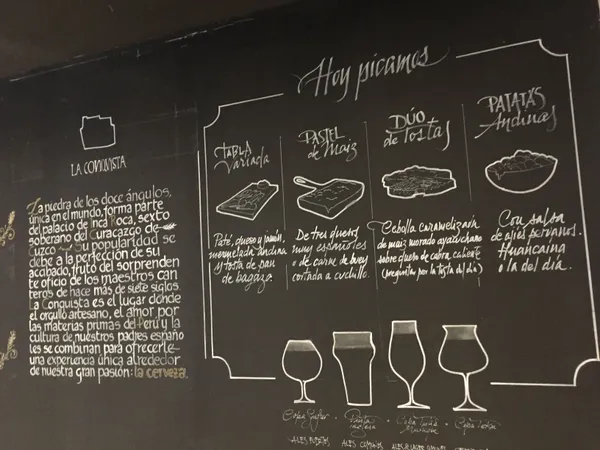 Hoy picamos
LA CONQUISTA
La piedra de los doce ángulos,
única en el mundo, forma parte
del palacio de Inca Roca, sexto
soberano del Curacazgo de
Cuzco. Su popularidad se
debe a la perfección de su
acabado, fruto del sorprenden
te oficio de los maestros can
teros de hace más de siete siglos.
La Conquista es el lugar donde
el orgullo artesano, el amor por
las materias primas del Perú y la
cultura de nuestros padres españo
les se combinan para ofrecerle
una experiencia única alrededor
de nuestra gran pasión: la cerveza.
TABLA
Variada
Paté, queso y jamón,
mermelada andina
y tosta de pan
de bagazo.
PASTEL
de Maíz
De tres quesos
muy españoles
o de carne de buey
cortada a cuchillo.
DÚO
de Tostas
Cebolla caramelizada
de maíz morado ayacuchano
sobre queso de cabra, caliente
(preguntar por la tosta del día)
PATATAS
Andinas
Con salsa
de ajíes peruanos.
Huancaína
o la del día.
Pinta
Copa